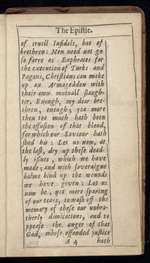 The Epistle.
of cruell Infidels, but of
brethren: Men need not go
so farre as Euphrates for
the execution of Turks and
Pagans, Christians can make
up an Armageddon with
their own mutuall slaugh-
ter, Enough, my dear bre-
thren, enough, yea more
then too much hath been
the effusion of that blood,
for which our Saviour hath
shed his: Let us now, at
the last, dry up these dead-
ly issues, which we have
made; and with soveraigne
balms bind up the wounds
we have given: Let us
now be, not more sparing
of our tears, to wash off the
memory of these our unbro-
therly dimications, and to
appease the anger of that
God, whose offended justice
A 4
hath